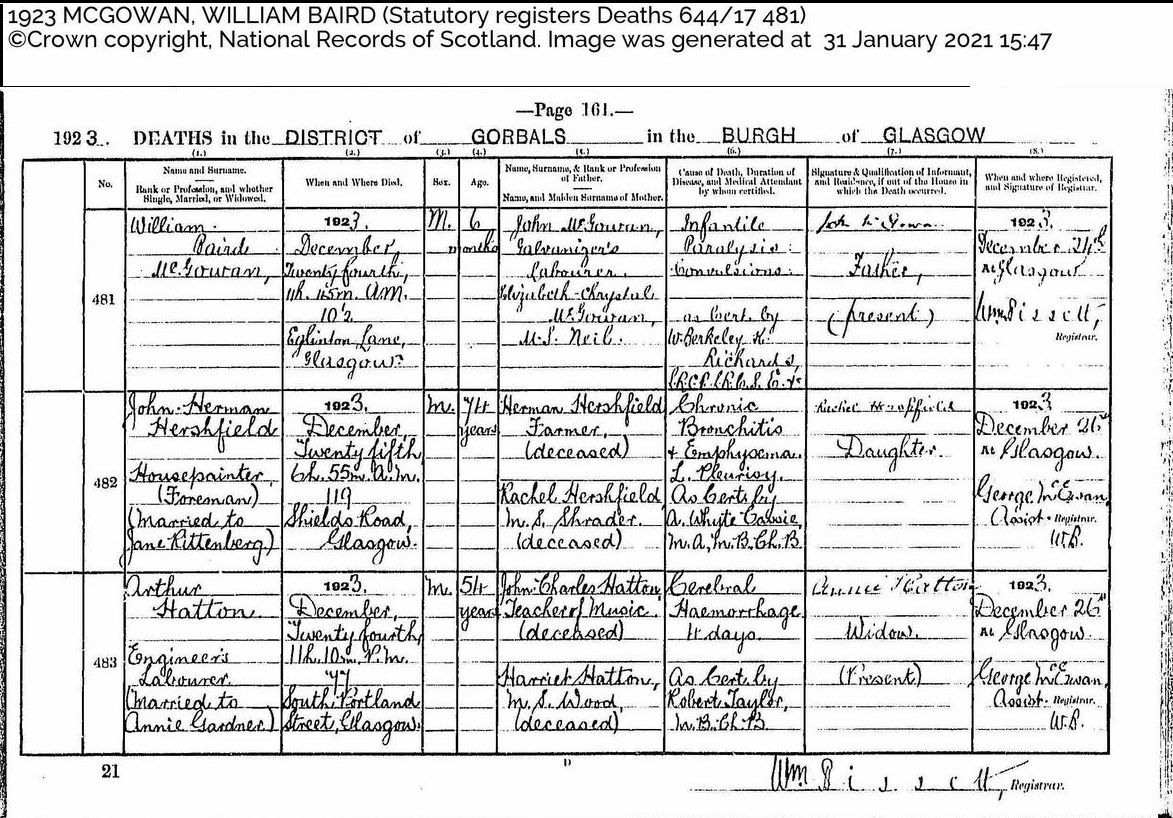 1923 MCGOWAN, WILLIAM BAIRD (Statutory registers Deaths 644/17 481)
©Crown copyright, National Records of Scotland. Image was generated at 31 January 2021 15:47
—Page 161.—
1923. DEATHS in the DISTRICT of GORBALS in the BURGH of GLASGOW
(1.) (2.) (3.) (4.) (5.) (6.) (7.) (8.)
No.
Name and Surname.
Rank or Profession, and whether
Single, Married, or Widowed.
When and Where Died.
Sex.
Age.
Name, Surname, & Rank or Profession
of Father.
Name, and Maiden Surname of Mother.
Cause of Death, Duration of
Disease, and Medical Attendant
by whom certified.
Signature & Qualification of Informant,
and Residence, if out of the House in
which the Death occurred.
When and where Registered,
and Signature of Registrar.
481
William
Baird
McGowan,
1923.
December,
Twenty fourth,
11h. 45m. A.M.
102
Eglinton Lane,
Glasgow.
M.
6
months
John McGowan,
Galvanizer's
Labourer.
Elizabeth Chrystal
McGowan,
M.S. Neil.
Infantile
Paralysis:
Convulsions:
as Cert. by
W. Berkeley H.
Richards,
John McGowan
Father,
(present)
1923.
December 24th
At Glasgow
Wm Bissett,
Registrar.
482
John Herman
Hershfield
Housepainter,
(Foreman)
(Married to
Jane Rittenberg)
1923.
December,
Twenty fifth,
6h. 55m. A.m.
119
Shields Road,
Glasgow.
m.
74
years
Herman Hershfield
Farmer,
(deceased)
Rachel Hershfield,
m. S. Shrader.
(deceased)
Chronic
Bronchitis
& Emphysema.
L. Pleurisy.
As Cert. by
A. Whyte Cassie,
M.A., M.B. Ch. B.
Rachel Hershfield
Daughter.
1923
December 26th
At Glasgow.
George McEwan,
Assist. Registrar.
W.B.
483
Arthur
Hatton.
Engineer's
Labourer.
(Married to
Annie Gardner)
1923.
December,
Twenty fourth,
11h. 10m. P.m.
77
South Portland
Street, Glasgow.
m.
54
years
John Charles Hatton,
Teacher of Music.
(deceased)
Harriet Hatton,
m. S. Wood,
(deceased)
Cerebral
Haemorrhage
4 days.
As Cert. by
Robert Taylor,
M.B. Ch. B.
Annie Hatton
Widow.
(Present)
1923.
December 26th
At Glasgow.
George McEwan,
Assist. Registrar.
W.B.
21
D
Wm Bissett, Registrar.